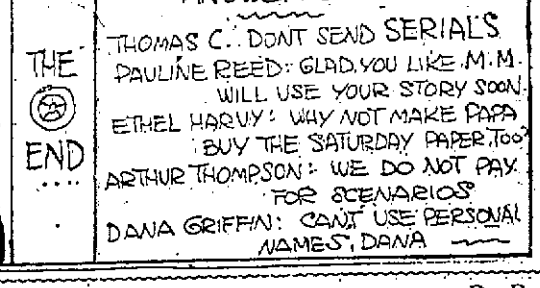 THE
END
THOMAS C.: DONT SEND SERIALS
PAULINE REED: GLAD YOU LIKE M.M.
WILL USE YOUR STORY SOON.
ETHEL HARVY: WHY NOT MAKE PAPA
BUY THE SATURDAY PAPER, TOO?
ARTHUR THOMPSON: WE DO NOT PAY
FOR SCENARIOS
DANA GRIFFIN: CANT USE PERSONAL
NAMES, DANA